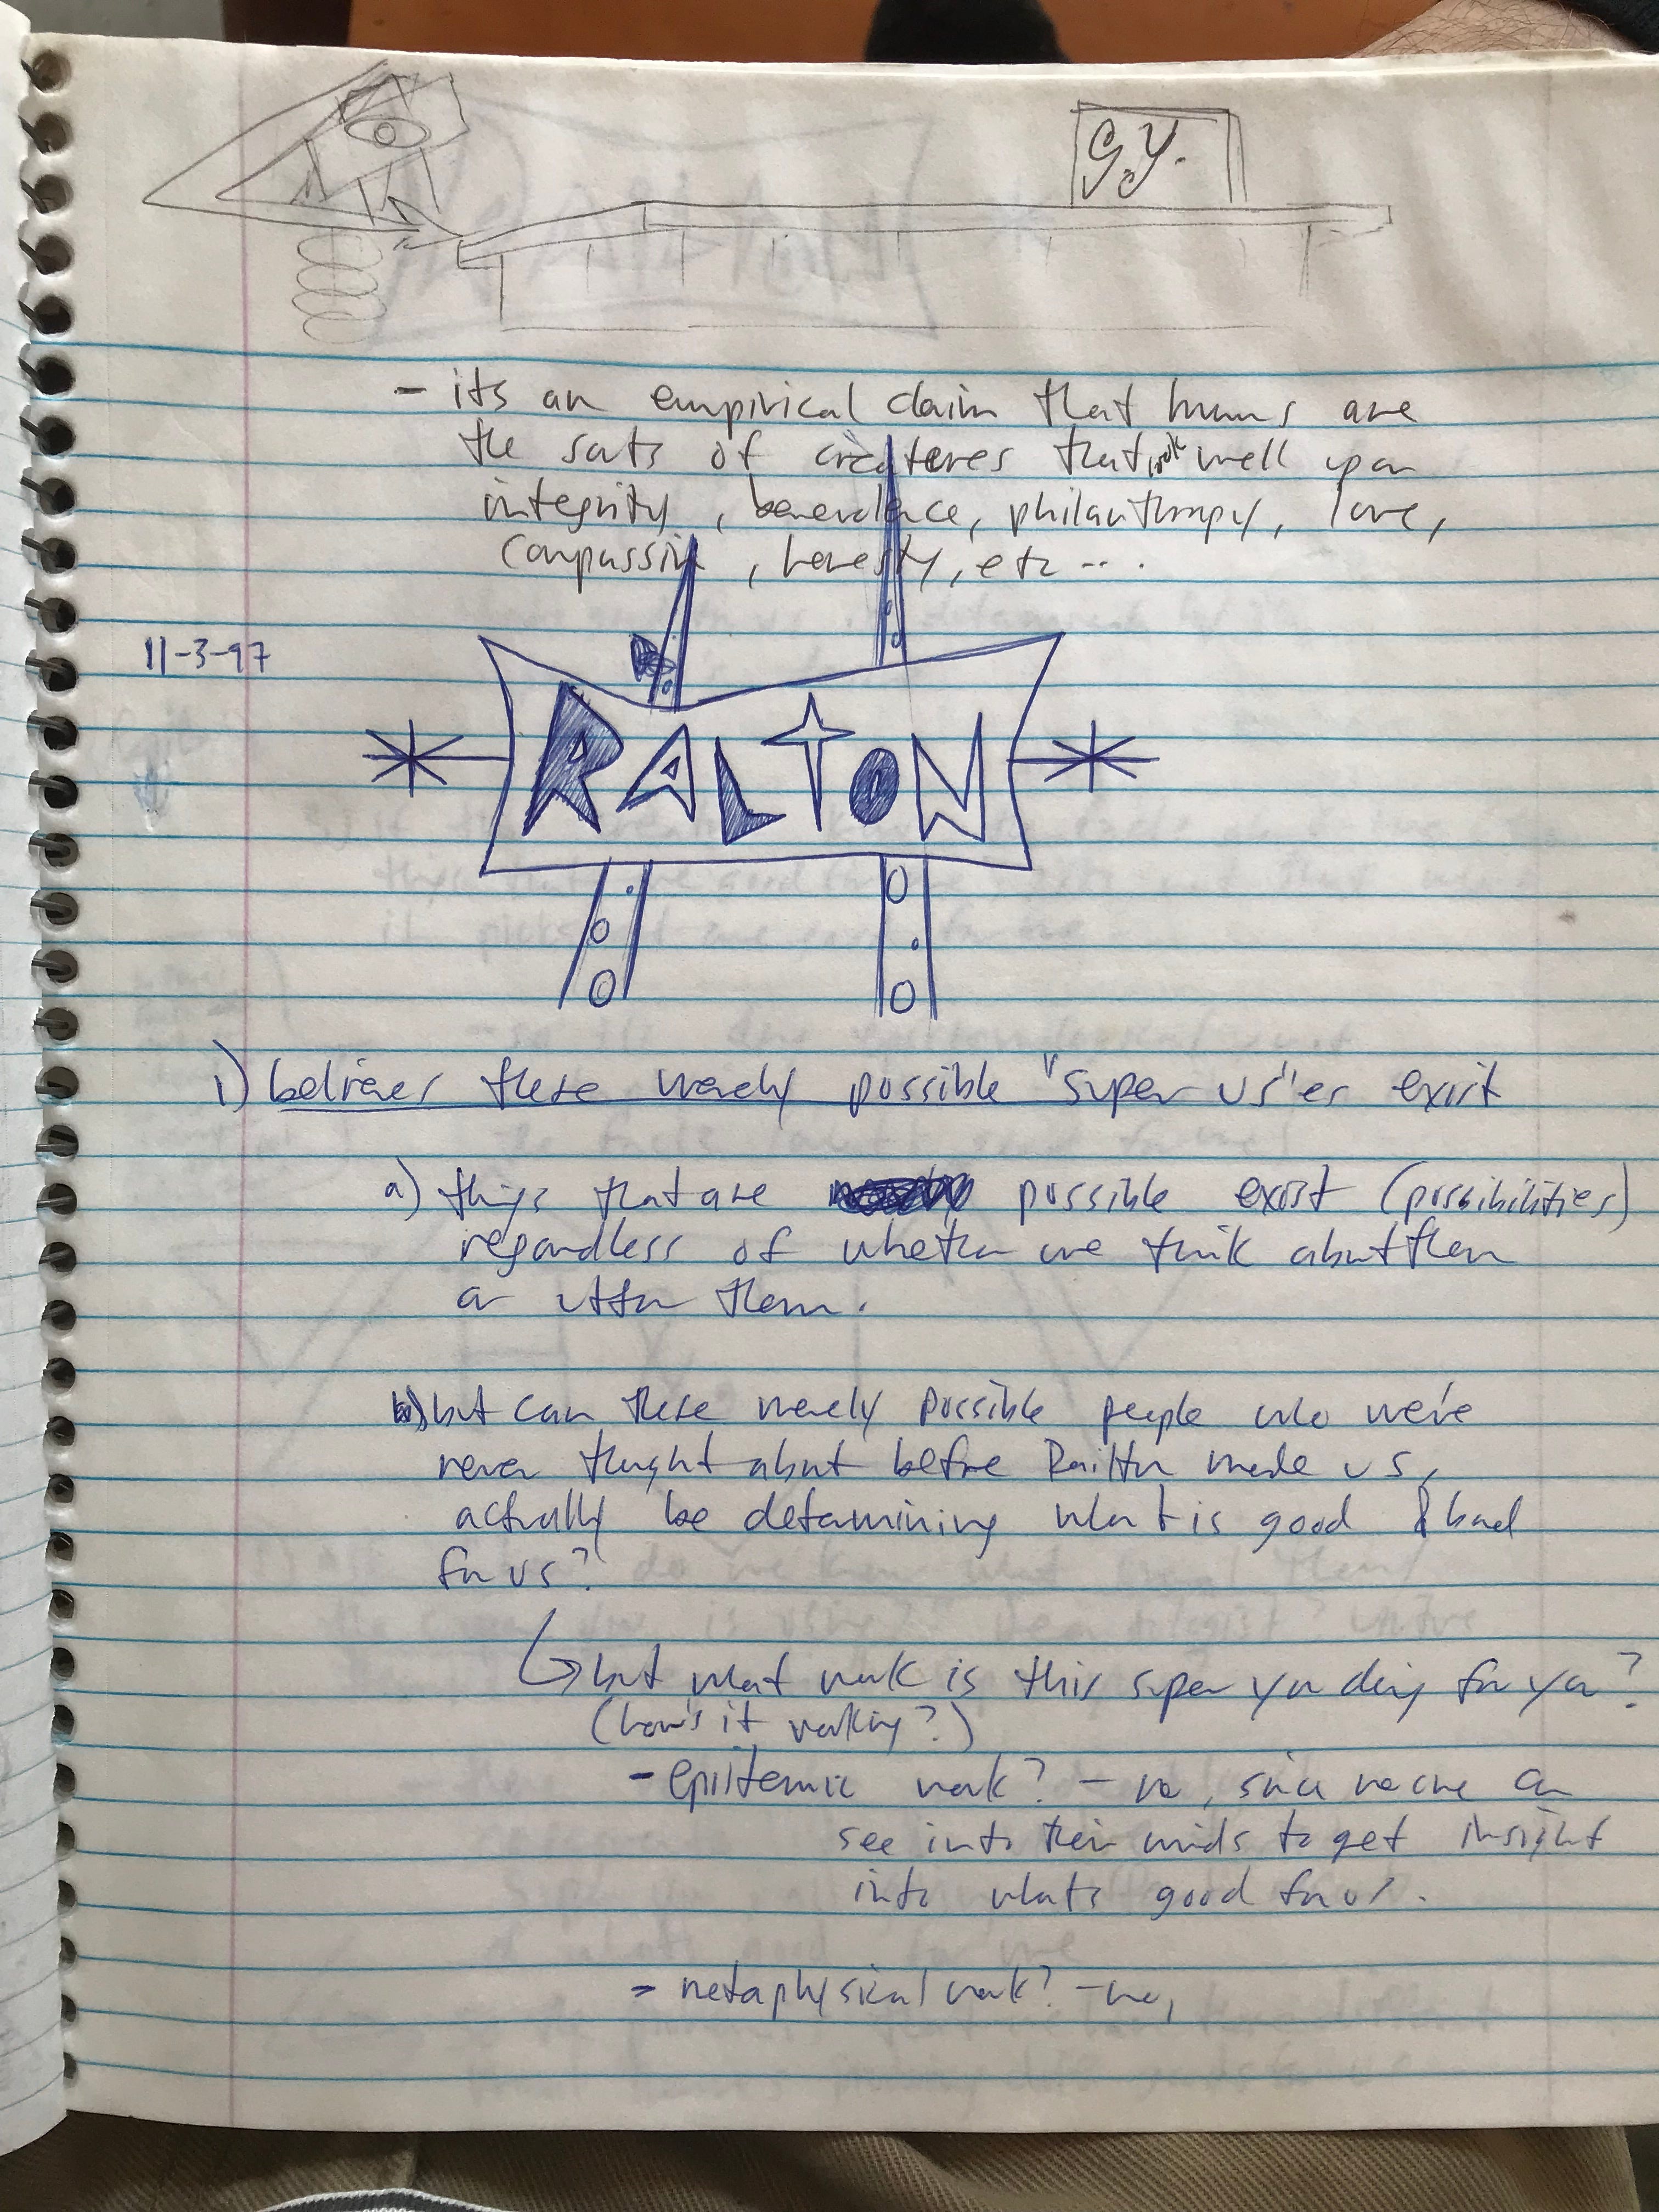 G.Y.
- its an empirical claim that humans are
the sorts of creatures that work well upon
integrity, benevolence, philanthropy, love,
compassion, honesty, etc...
11-3-97
RALTON
1) believes these merely possible "super us"es exist
a) things that are possible exist (possibilities)
regardless of whether we think about them
or utter them.
b) but can these merely possible people who we've
never thought about before Railton made us,
actually be determining what is good & bad
for us?
but what work is this super you doing for you?
(how's it working?)
- epistemic work? - no, since no one can
see into their minds to get insight
into whats good for us.
- metaphysical work? - no,